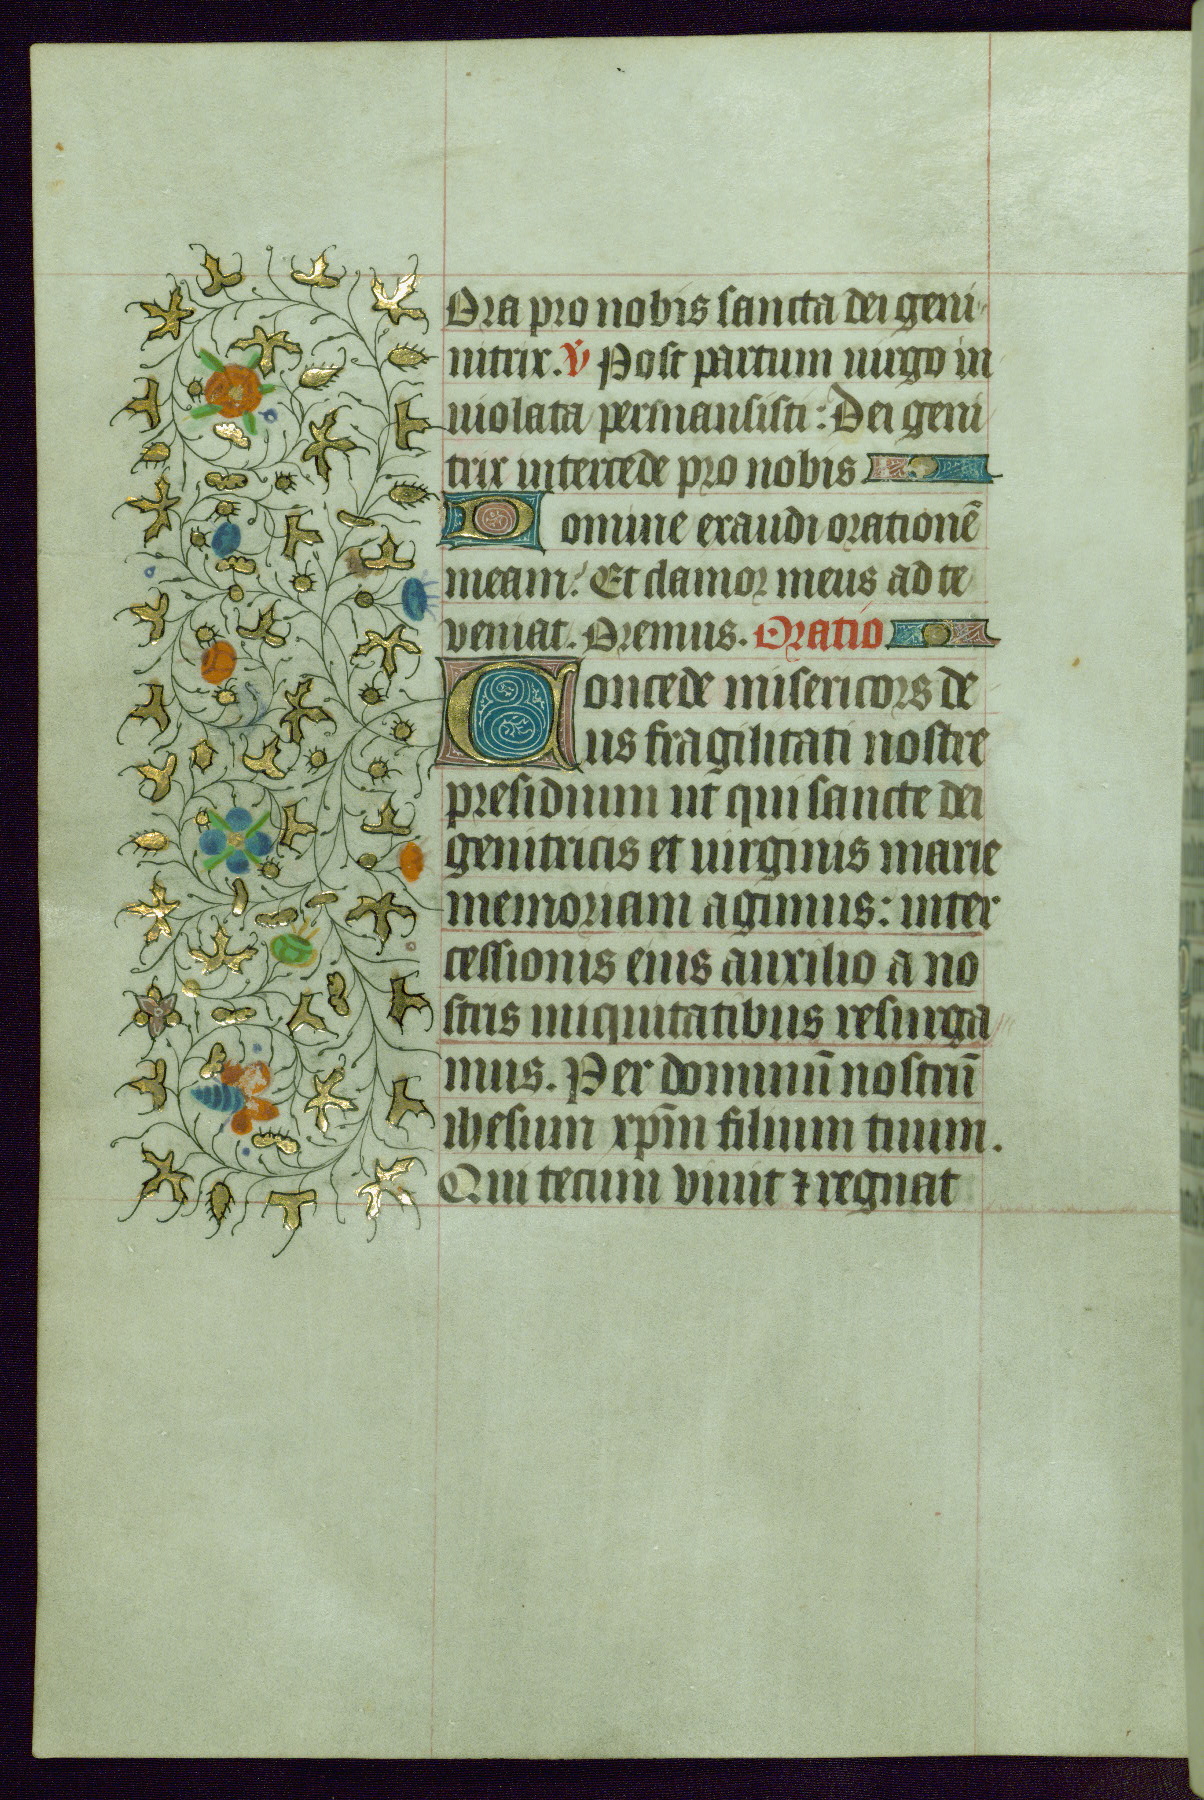 Ora pro nobis sancta dei geni
nitrix. v̄ Post partum uirgo in
uiolata permansisti: Dei geni
trix intercede pro nobis
Domine exaudi orationē
meam: Et clamor meus ad te
veniat. Oremus. Oratio
Concede misericors de
us fragilitati nostre
presidium ut qui sancte dei
genitricis et uirginis marie
memoriam agimus: inter
cessionis eius auxilio a no
stris iniquitatibus resurga
mus. Per dominū nostrū
ihesum xp̄m filium tuum.
Qui tecum viuit ⁊ regnat